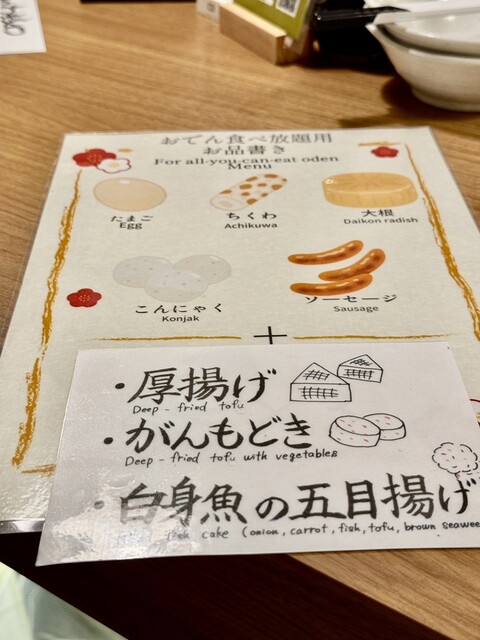 おでん食べ放題用
お品書き
For all-you-can-eat oden
Menu
たまご
Egg
ちくわ
Achikuwa
大根
Daikon radish
こんにゃく
Konjak
ソーセージ
Sausage
+
・厚揚げ
Deep-fried tofu
・がんもどき
Deep-fried tofu with vegetables
・白身魚の五目揚げ
cake (onion, carrot, fish, tofu, brown seawee